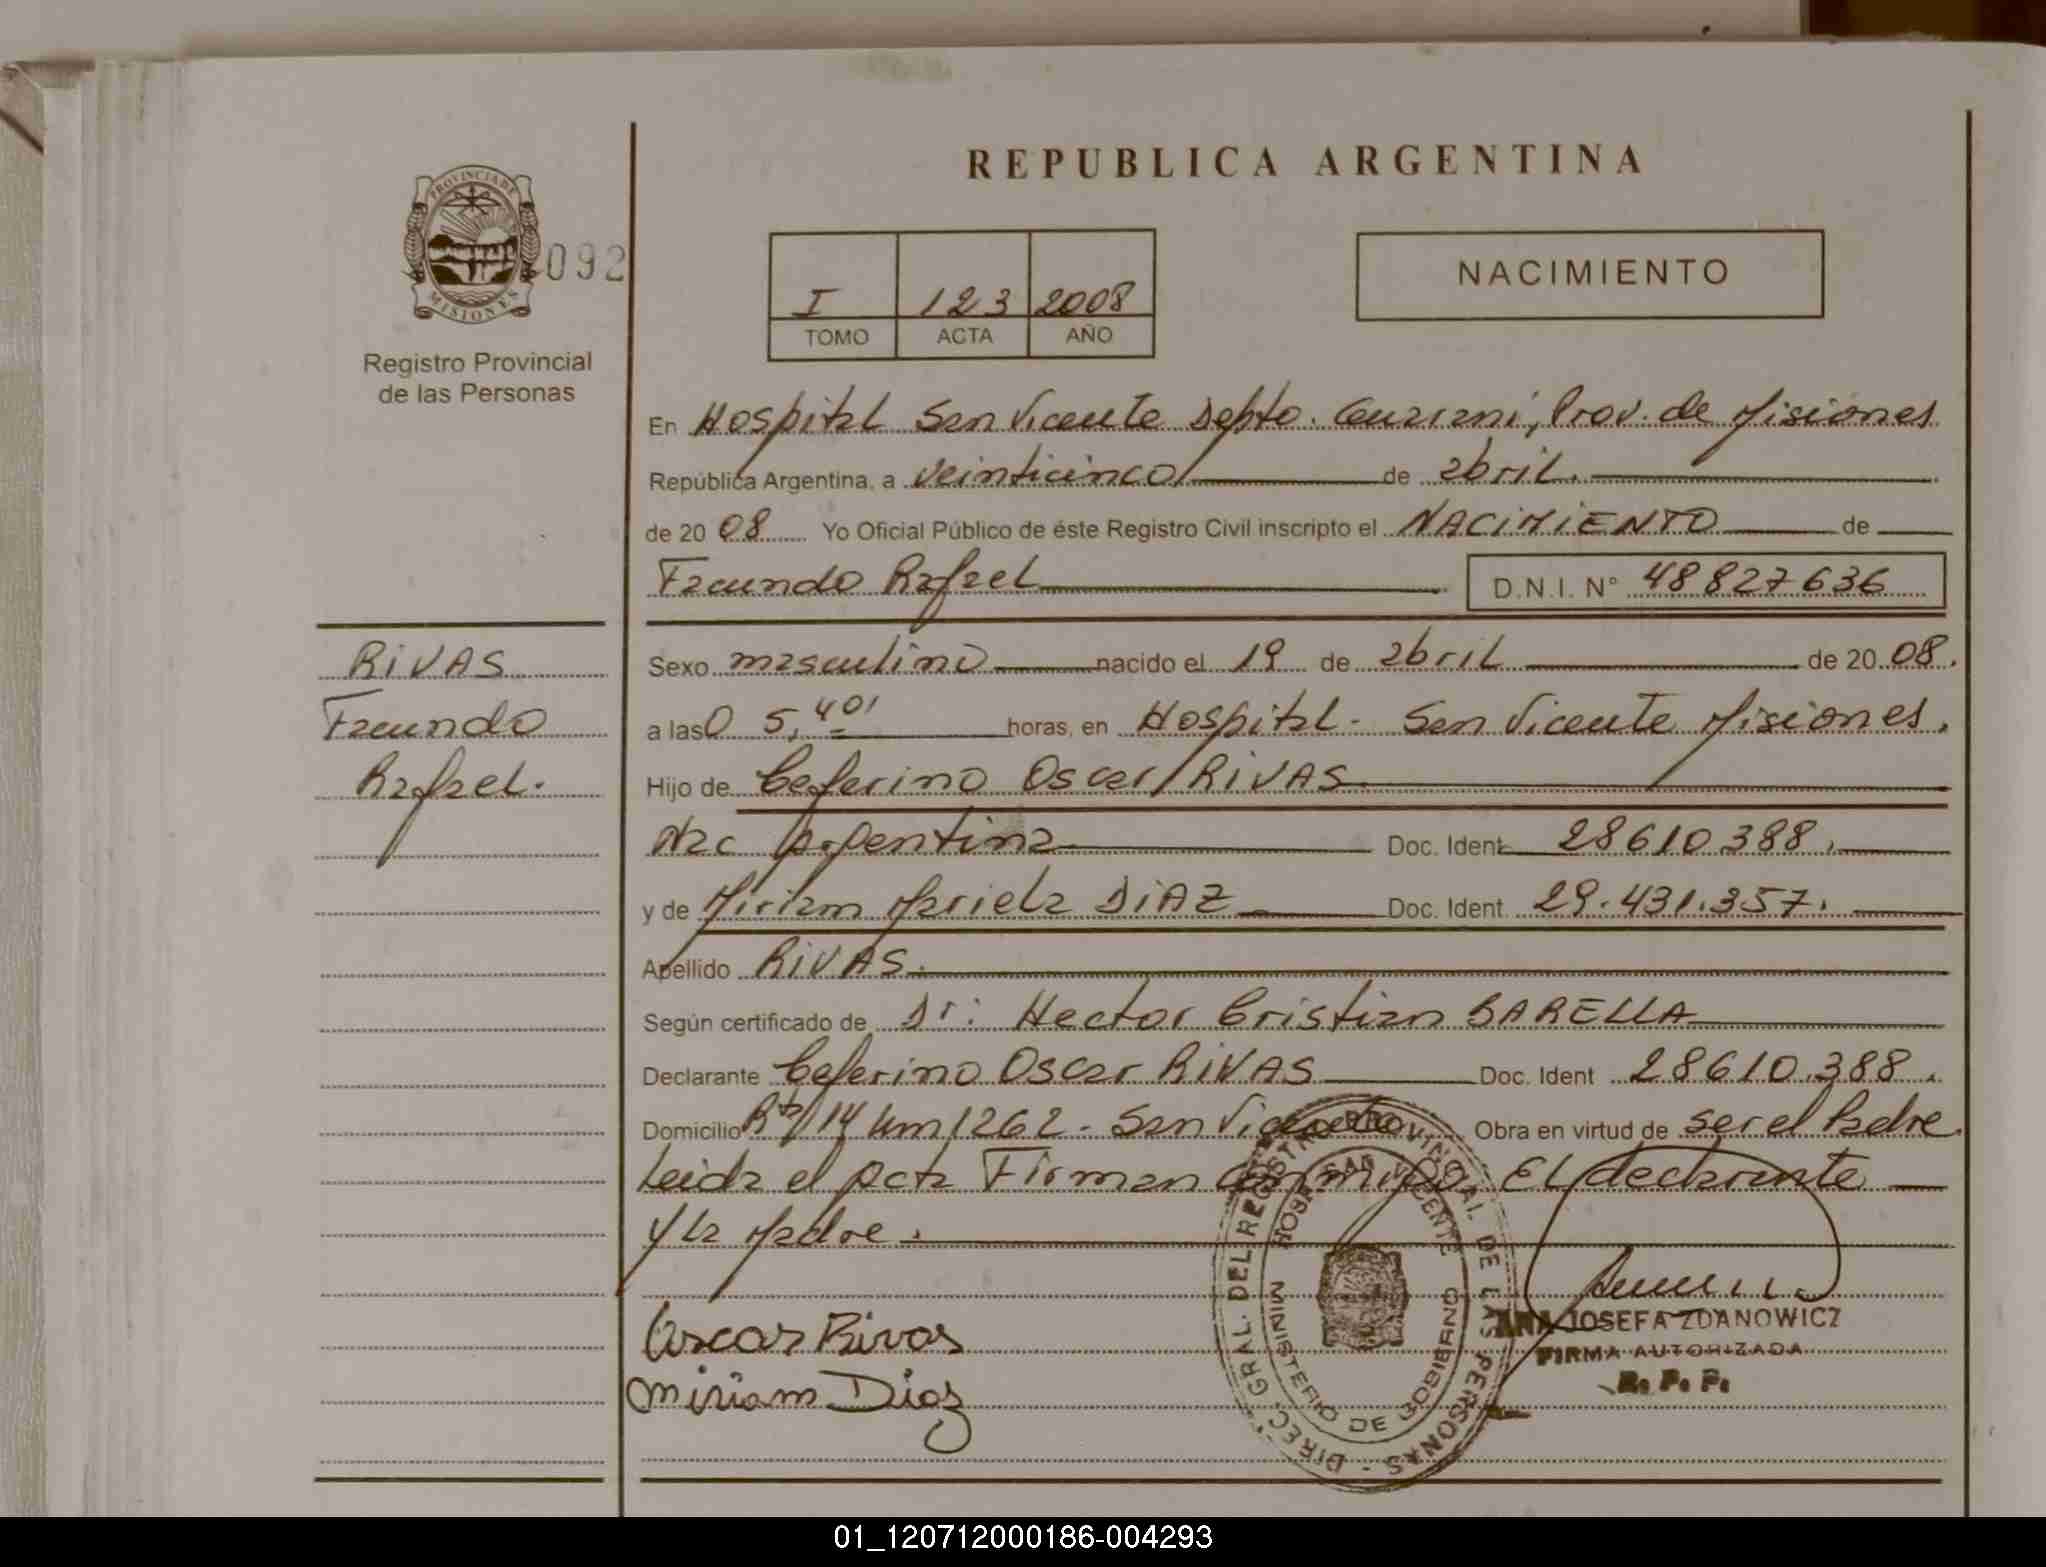 REPUBLICA ARGENTINA
PROVINCIA DE
MISIONES
092
Registro Provincial
de las Personas
I 123 2008
TOMO ACTA AÑO
NACIMIENTO
En Hospital San Vicente Depto. Guaraní, Prov. de Misiones
República Argentina, a veinticinco de abril.
de 20 08 Yo Oficial Público de éste Registro Civil inscripto el NACIMIENTO de
Facundo Rafael D.N.I. Nº 48827636
RIVAS
Facundo
Rafael.
Sexo masculino nacido el 19 de abril de 20 08.
a las 05,40' horas, en Hospital - San Vicente Misiones.
Hijo de Ceferino Oscar RIVAS
Nac Argentina Doc. Ident 28610.388.
y de Miriam Mariela DIAZ Doc. Ident 29.431.357.
Apellido RIVAS.
Según certificado de Dr: Hector Cristian BARELLA
Declarante Ceferino Oscar RIVAS Doc. Ident 28610.388.
Domicilio Rta/14 km/262 - San Vicente Obra en virtud de ser el Padre
Leida el acta Firman conmigo El declarante
y la Madre.
Oscar Rivas
Miriam Diaz
DIREC. GRAL. DEL REGISTRO PROVINCIAL DE LAS PERSONAS -
HOSP. SAN VICENTE
MINISTERIO DE GOBIERNO
ANA JOSEFA ZDANOWICZ
FIRMA AUTORIZADA
R. P. P.
01_120712000186-004293